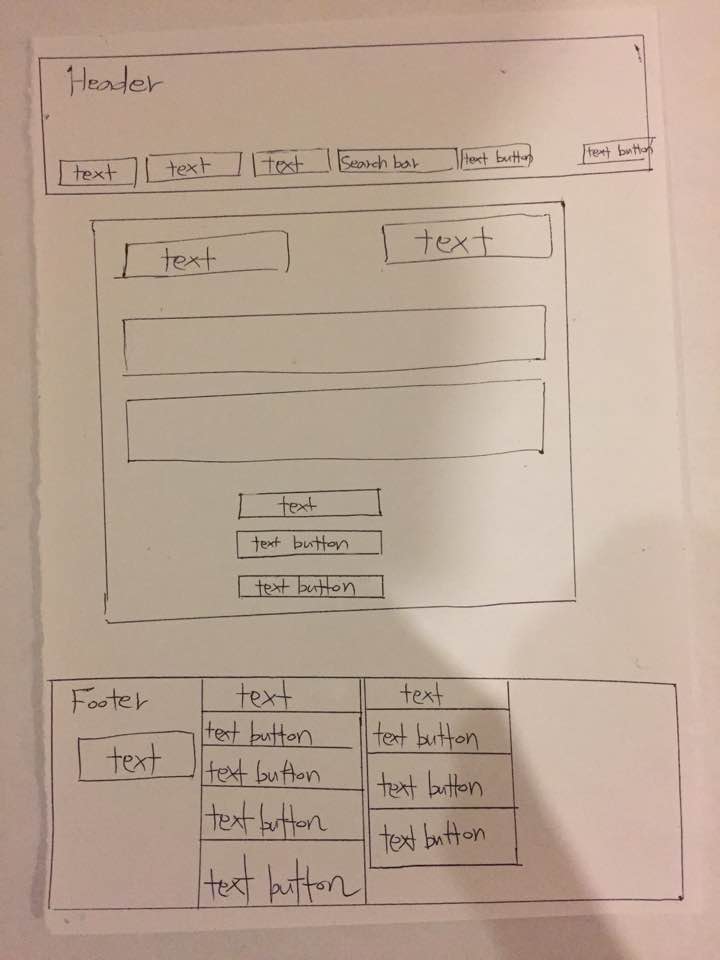 Header
text text text Search bar text button text button
text text
text
text button
text button
Footer text text
text
text button text button
text button text button
text button text button
text button